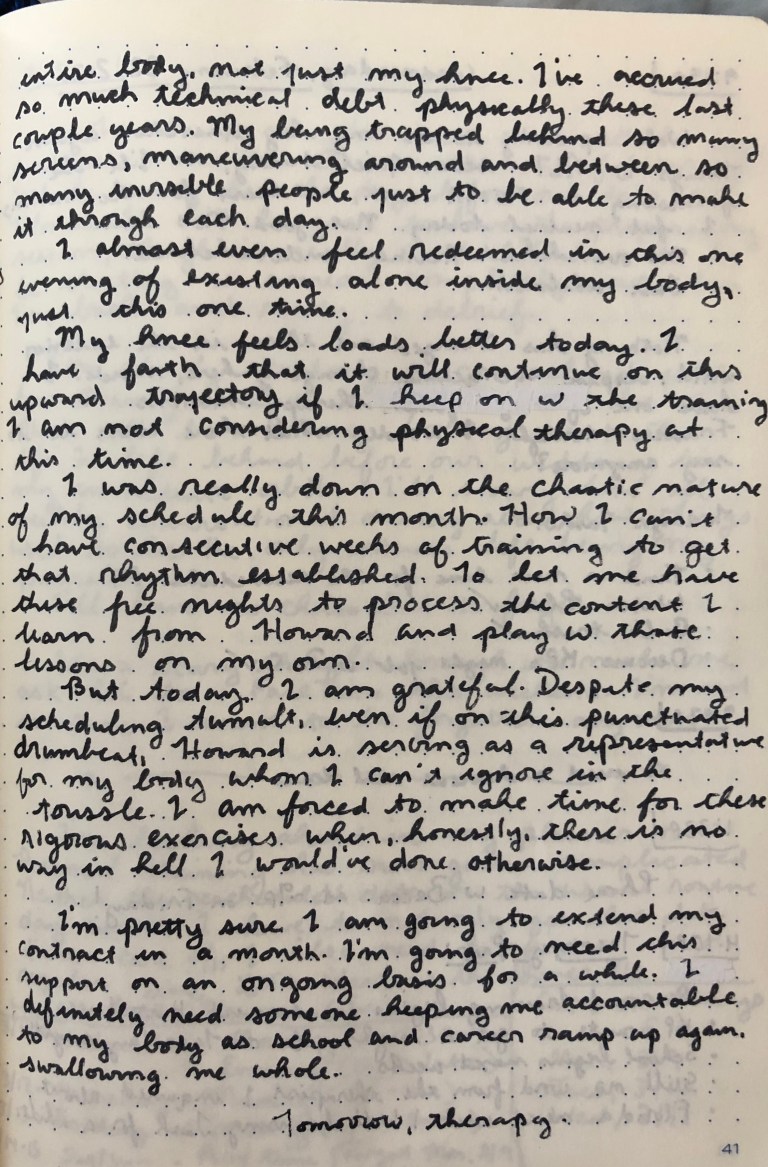 entire body, not just my knee. I've accrued
so much technical debt physically these last
couple years. My being trapped behind so many
screens, maneuvering around and between so
many invisible people just to be able to make
it through each day.
I almost even feel redeemed in this one
evening of existing alone inside my body,
just this one time.
My knee feels loads better today. I
have faith that it will continue on this
upward trajectory if I keep on w the training
I am not considering physical therapy at
this time.
I was really down on the chaotic nature
of my schedule this month. How I can't
have consecutive weeks of training to get
that rhythm established. To let me have
these free nights to process the content I
learn from Howard and play w those
lessons on my own.
But today, I am grateful. Despite my
scheduling tumult, even if on this punctuated
drumbeat, Howard is serving as a representative
for my body whom I can't ignore in the
toussle. I am forced to make time for these
rigorous exercises when, honestly, there is no
way in hell I would've done otherwise.
I'm pretty sure I am going to extend my
contract in a month. I'm going to need this
support on an ongoing basis for a while. I
definitely need someone keeping me accountable
to my body as school and career ramp up again,
swallowing me whole.
Tomorrow, therapy.
41